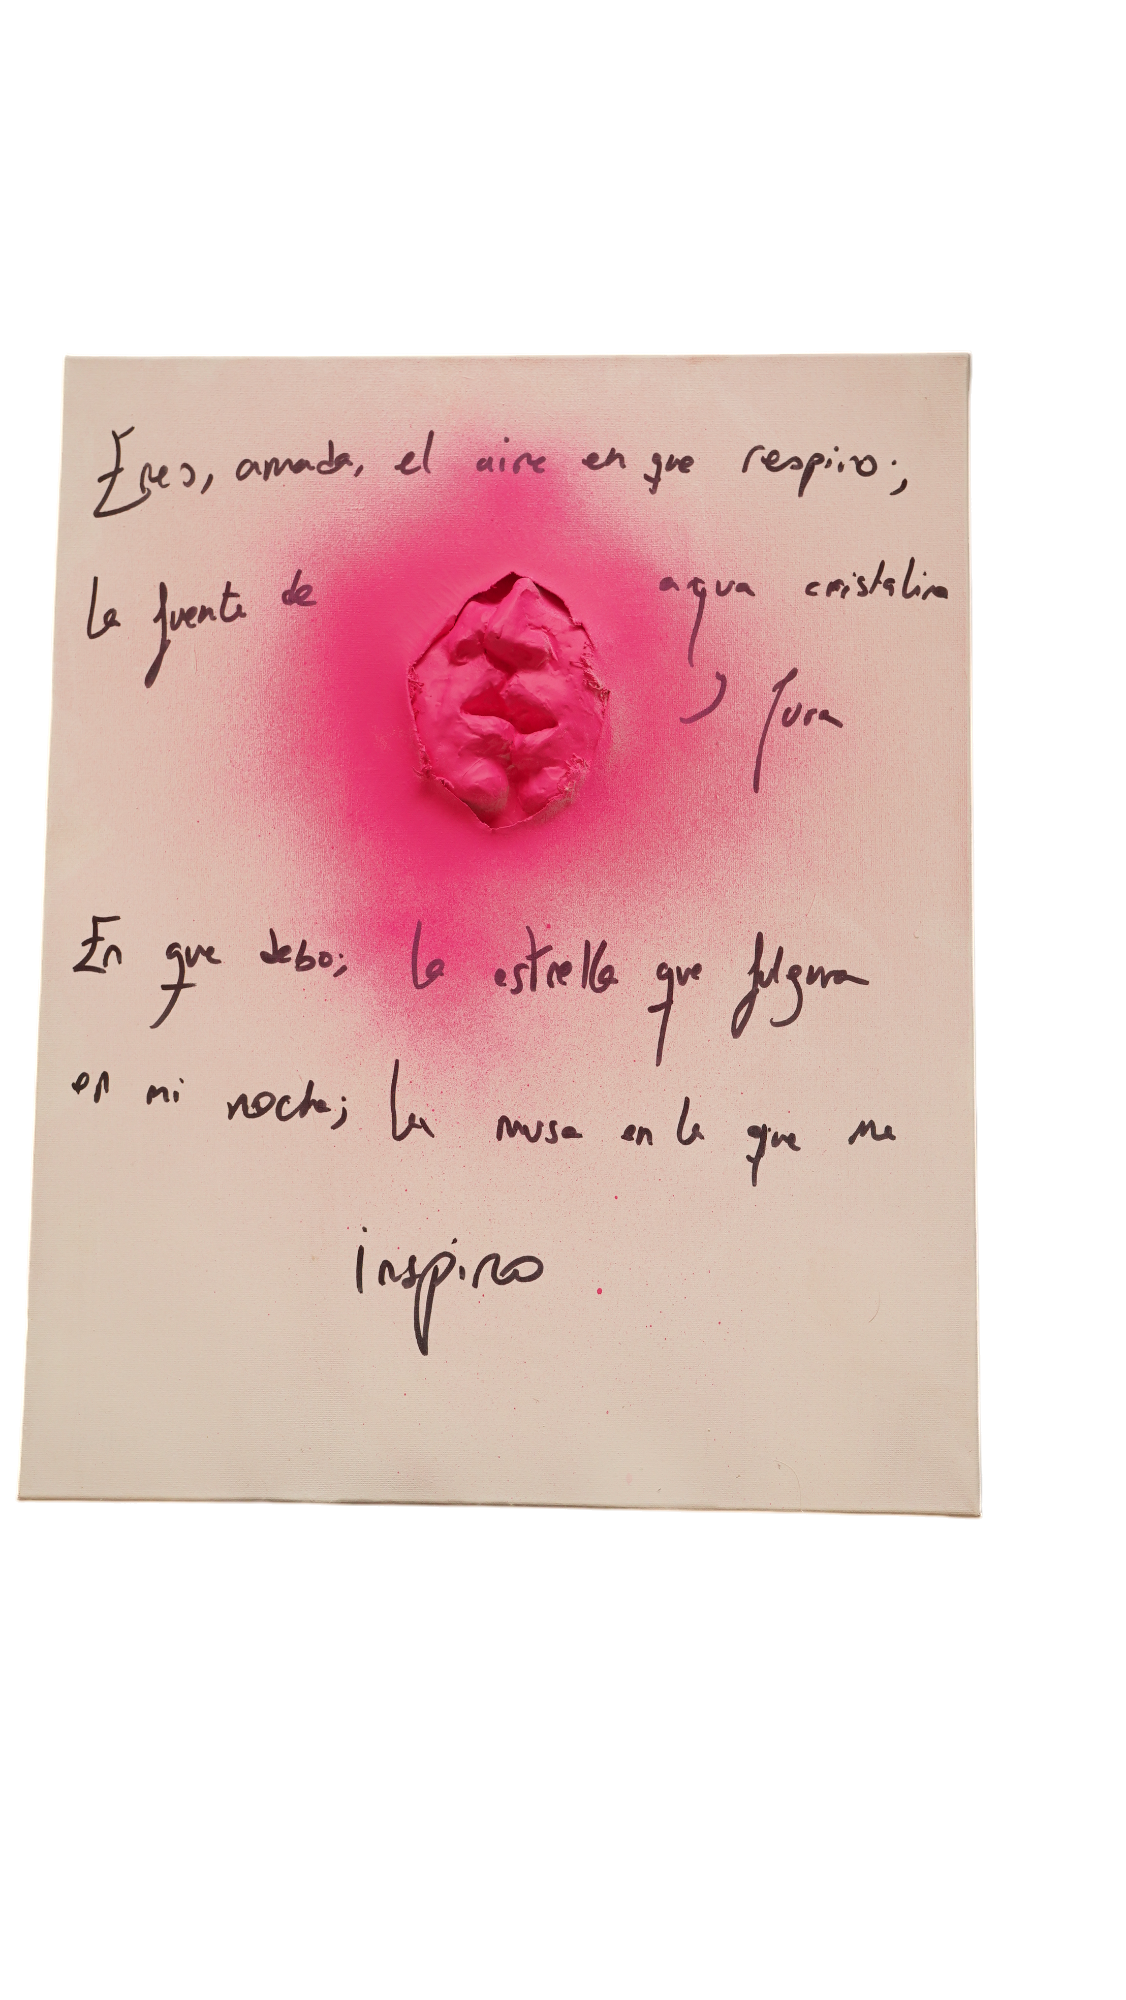 Eres, amada, el aire en que respiro;
la fuente de agua cristalina
y pura
En que debo; la estrella que fulgura
en mi noche; la musa en la que me
inspiro